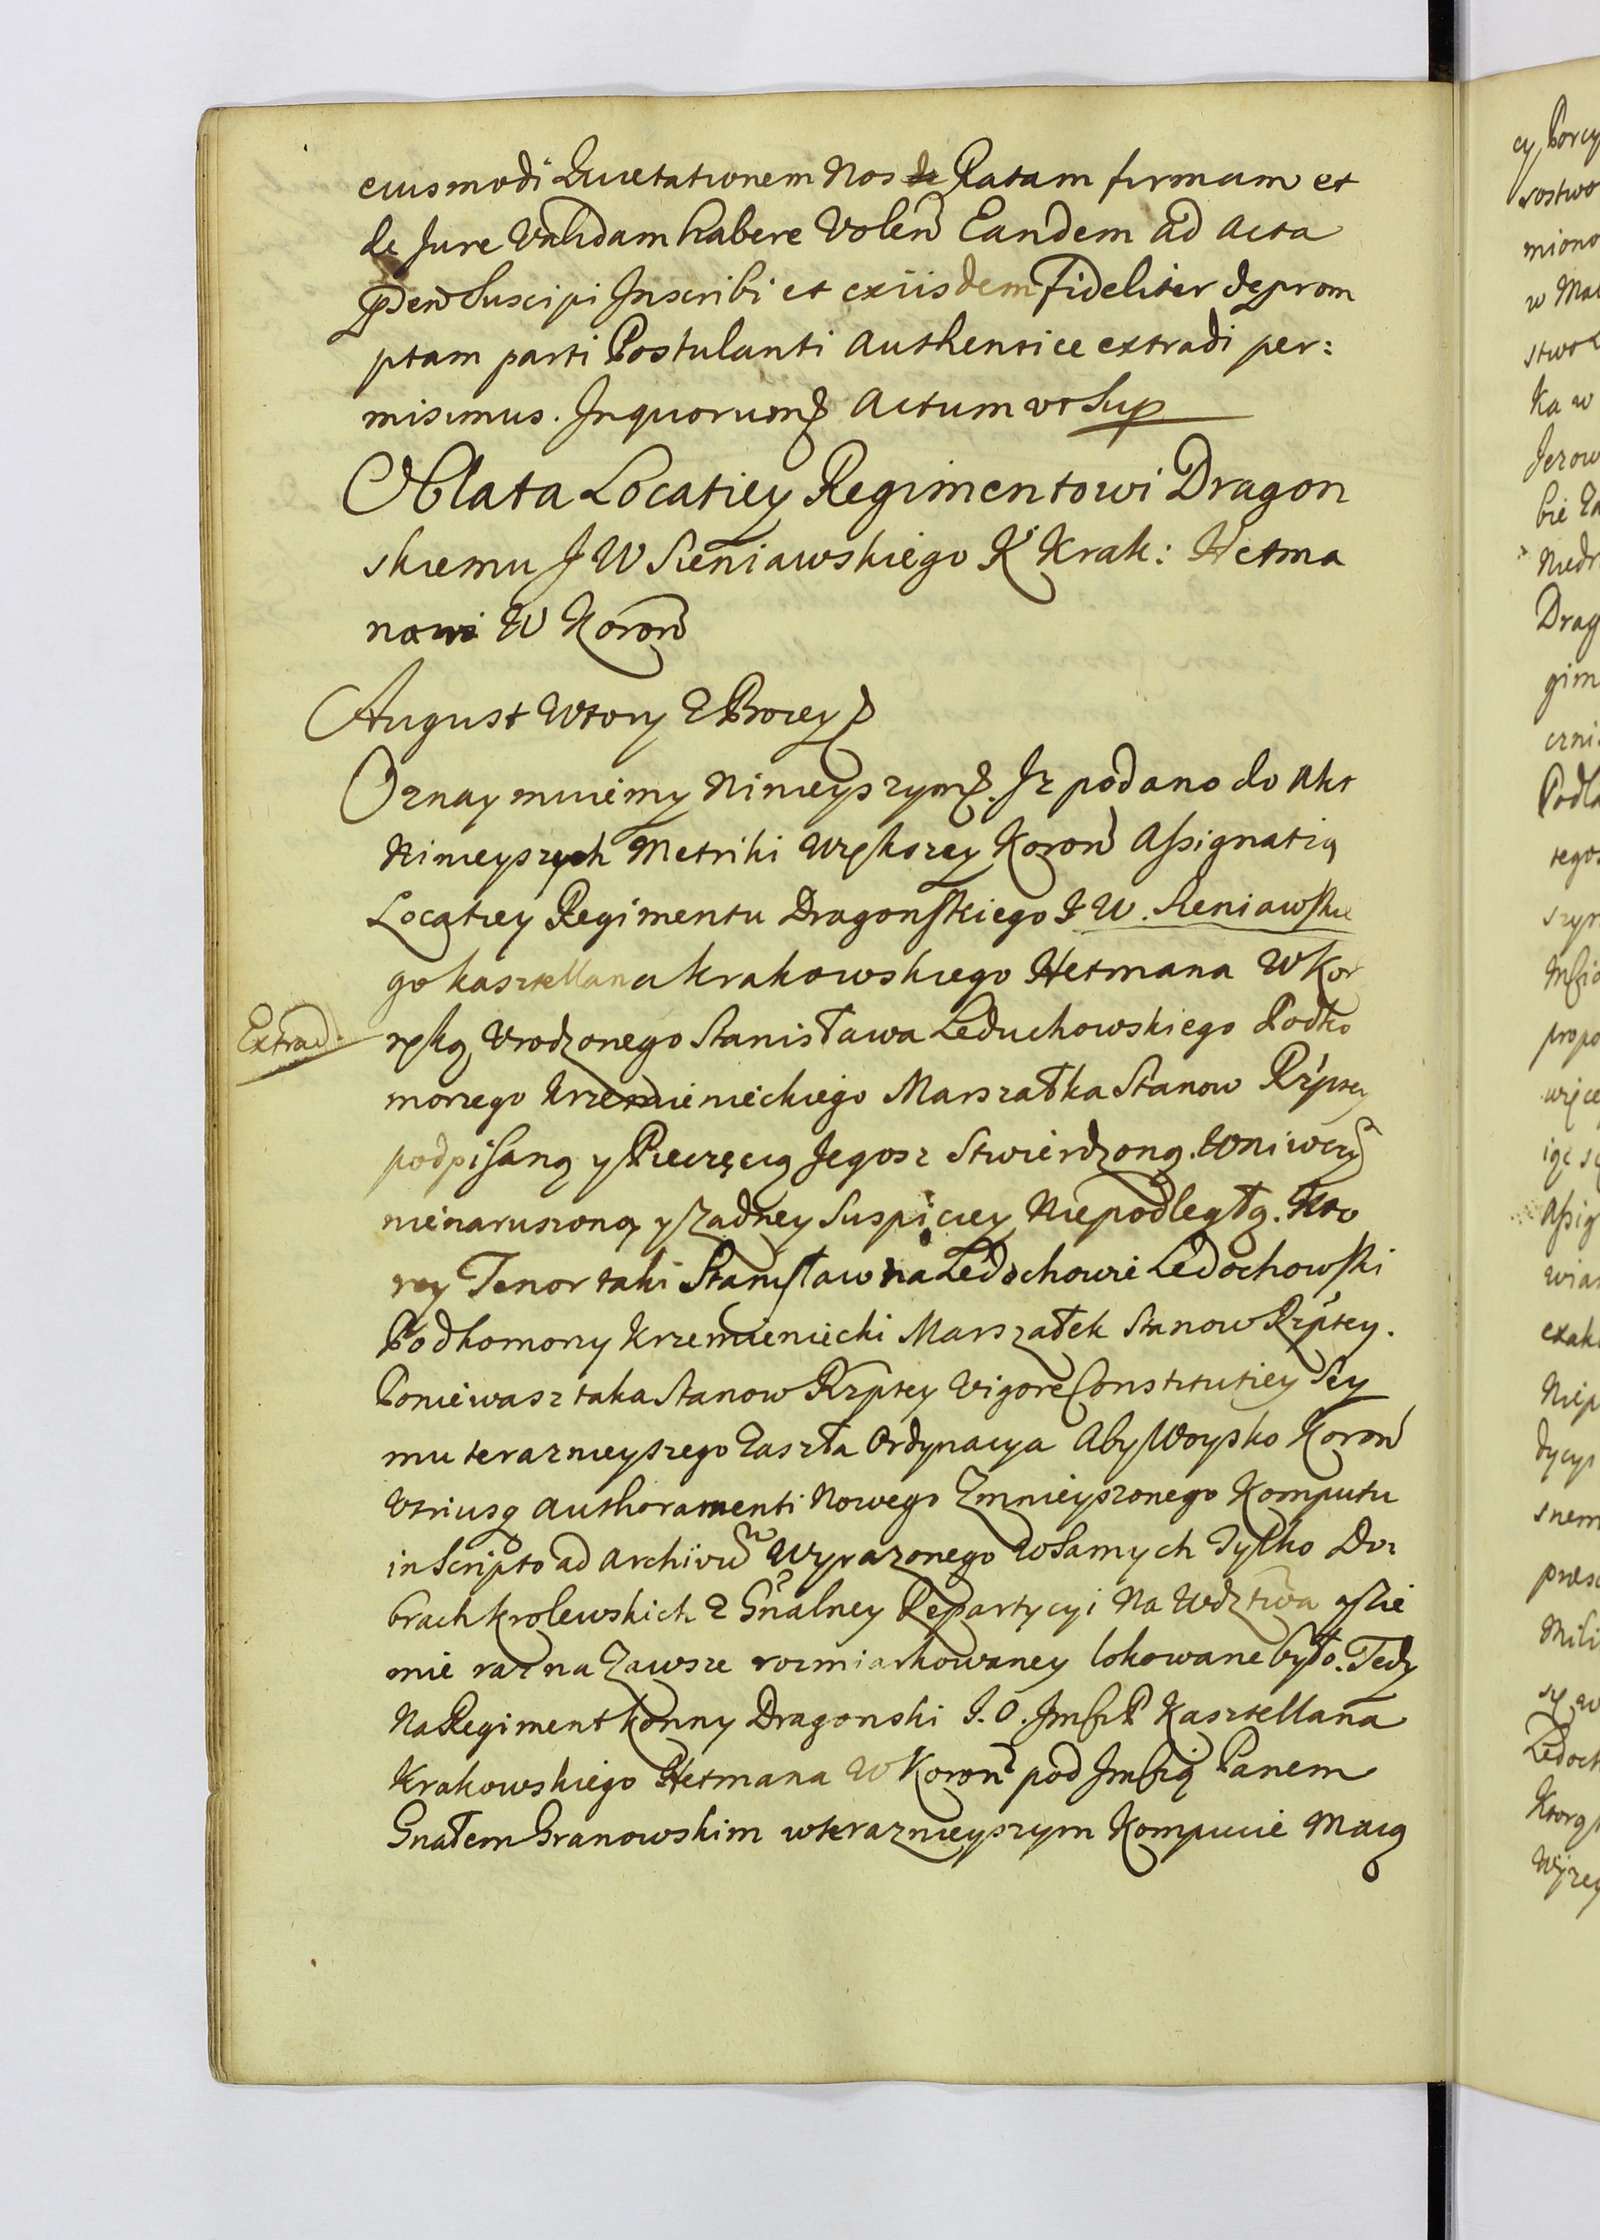 eiusmodi Quietationem Nos de Ratam firmam et
de Jure Validam habere Volen Eandem ad Acta
Pden Suscipi Inscribi et exiisdem fideliter deprom
ptam parti Postulanti Authentice extradi per:
misimus. Inquorum Actum vt Sup
Oblata Locatiey Regimentowi Dragon
skiemu J W Sieniawskiego K Krak: Hetma
nowi W Koron
August Wtory Z Bozey
Oznaymuiemy Ninieyszym. Jz podano do Akt
Ninieyszych Metriki Większey Koron Assignatią
Locatiey Regimentu Dragonskiego J W. Sieniawskie
go kasztellana krakowskiego Hetmana W Kor
Extrad:
ręką Vrodzonego Stanisława Leduchowskiego Podko
morzego krzemienieckiego Marszałka Stanow Rzptey
podpisaną y Pieczęcią Jegosz Stwierdzoną. wniwczy
nienaruszoną y Zadney Suspiciey Niepodległą. Kto
rey Tenor taki Stanisław na Ledochowie Ledochowski
Podkomorzy krzemieniecki Marszałek Stanow Rzptey.
Poniewasz taka Stanow Rzptey Vigore Constitutiey Sey
mu teraznieyszego Zaszła Ordynacya Aby Woysko Koron
Vtriusq Authoramenti Nowego Zmnieyszonego Komputu
in Scripto ad Archivũ Wyrazonego wSamych Tylko Do:
brach krolewskich z Gnalney Repartycyi Na Wdztwa y Zie
mie raz na Zawsze rozmiarkowaney lokowane było. Tedy
Na Regiment konny Dragonski J. O. Jmsci P Kasztellana
Krakowskiego Hetmana W Koron pod Jmscią Panem
Gnałem Granowskim wteraznieyszym Kompucie Maią